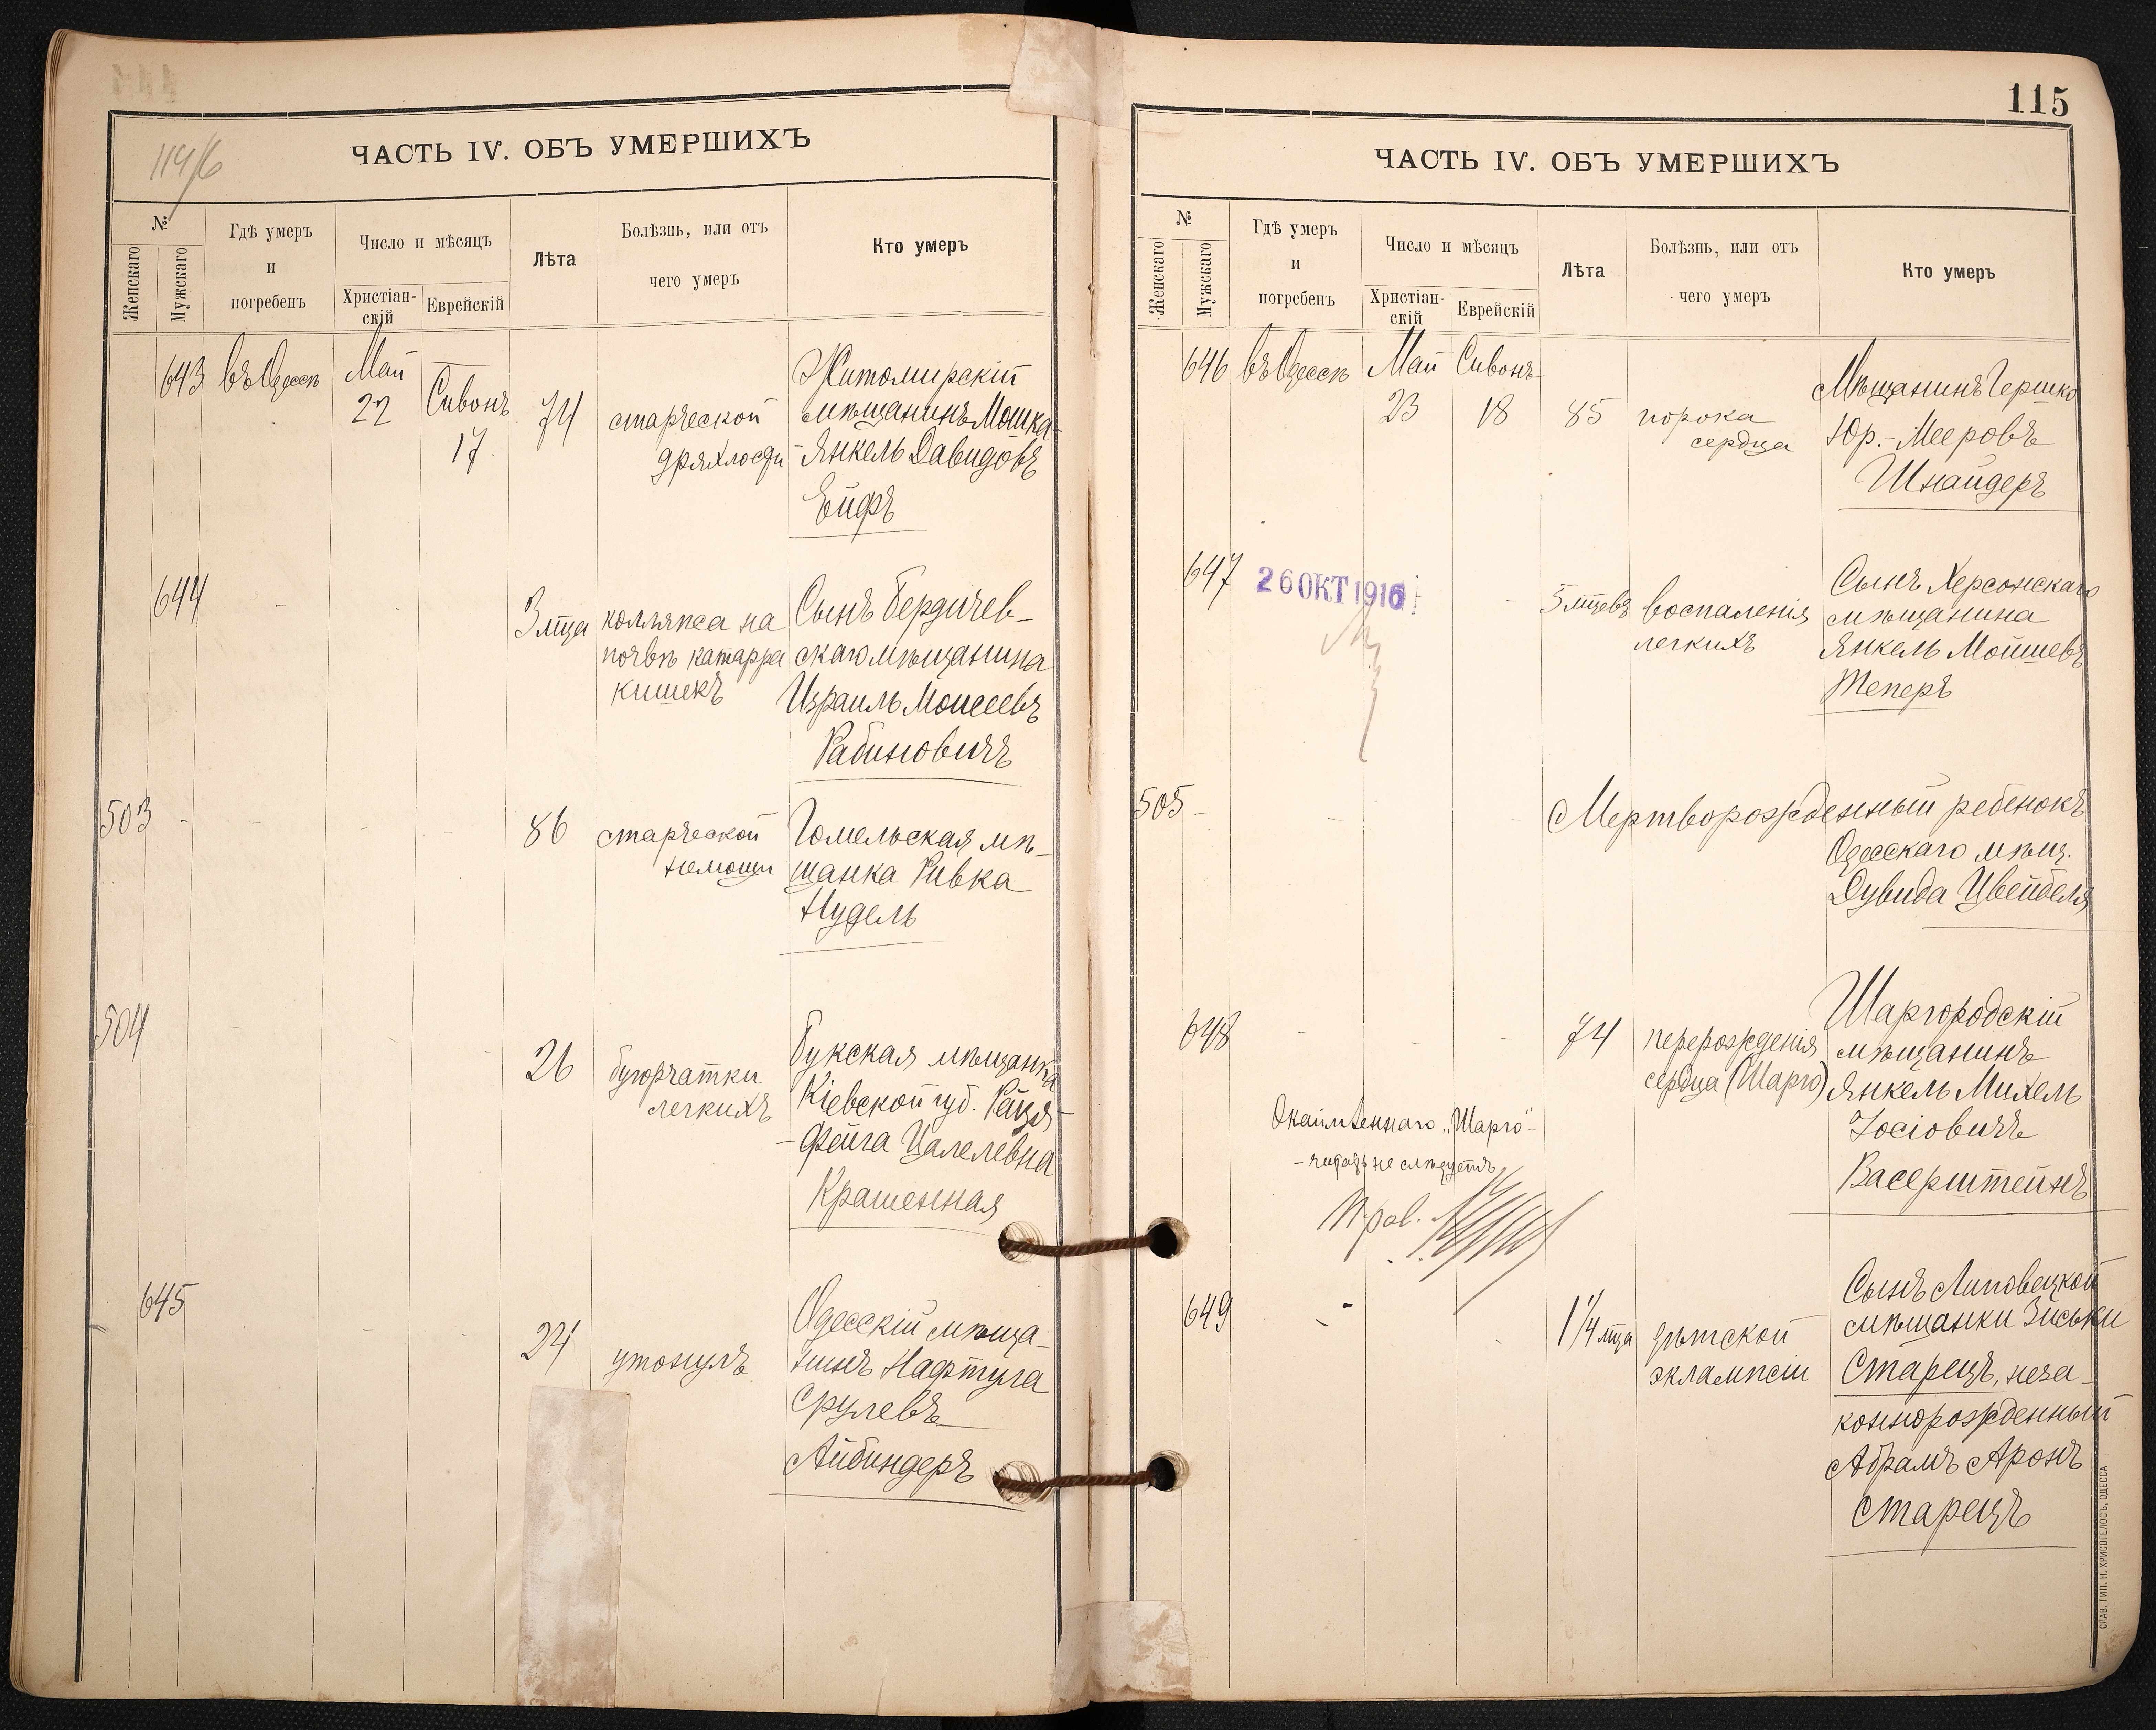 114/6
ЧАСТЬ IV. ОБЪ УМЕРШИХЪ
№
Женскаго
Мужскаго
Гдѣ умеръ
и
погребенъ
Число и мѣсяцъ
Христіан-
скій
Еврейскій
Лѣта
Болѣзнь, или отъ
чего умеръ
Кто умеръ
643
въ Одессѣ
Май
22
Сивонъ
17
74
старческой
дряхлости
Житомирскій
мѣщанинъ Мошка-
-Янкель Давидовъ
Ейфъ
644
3 мѣца
колляпса на
почвѣ катарра
кишекъ
Сынъ Бердичев-
скаго мѣщанина
Израиль Моисеевъ
Рабиновичъ
503
86
старческой
немощи
Гомельская мѣ-
щанка Ривка
Нудель
504
26
бугорчатки
легкихъ
Букская мѣщанка
Кіевской губ. Рейзя-
-Фейга Цалелевна
Крашенная
645
24
утонулъ
Одесскій мѣща-
нинъ Нафтула
Срулевъ
Айбиндеръ
115
ЧАСТЬ IV. ОБЪ УМЕРШИХЪ
№
Женскаго
Мужскаго
Гдѣ умеръ
и
погребенъ
Число и мѣсяцъ
Христіан-
скій
Еврейскій
Лѣта
Болѣзнь, или отъ
чего умеръ
Кто умеръ
646
въ Одессѣ
Май
23
Сивонъ
18
85
порока
сердца
Мѣщанинъ Гершко
Юр.-Мееровъ
Шнайдеръ
647
26 ОКТ 1916
5 мѣцевъ
воспаленія
легкихъ
Сынъ Херсонскаго
мѣщанина
Янкель Мойшевъ
Теперъ
505
Мертворожденный ребенокъ
Одесскаго мѣщ.
Дувида Цвейбеля
648
74
перерожденія
сердца (Шарго)
Шаргородскій
мѣщанинъ
Янкель Михель
Іосіовичъ
Васерштейнъ
Окаймленнаго „Шарго"
- читать не слѣдуетъ
649
1 1/4 мѣца
дѣтской
эклампсіи
Сынъ Липовецкой
мѣщанки Зиськи
Старецъ, неза-
коннорожденный
Абрамъ Аронъ
Старецъ
СЛАВ. ТИП. Н. ХРИСОГЕЛОСЪ, ОДЕССА